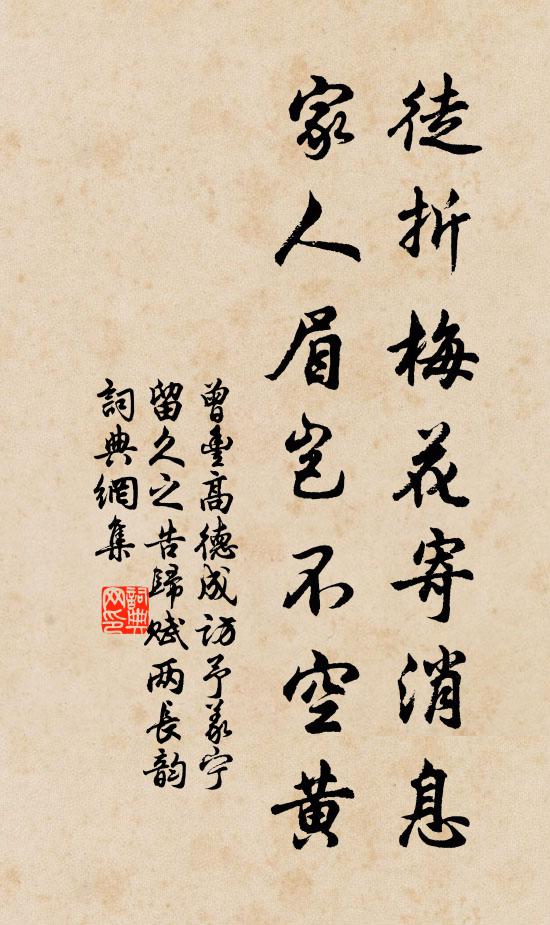 徒折梅花寄消息
家人眉岂不空黄
曾丰高德成访予义宁
留久之告歸赋两長韵
詞典網集
詞典
网印